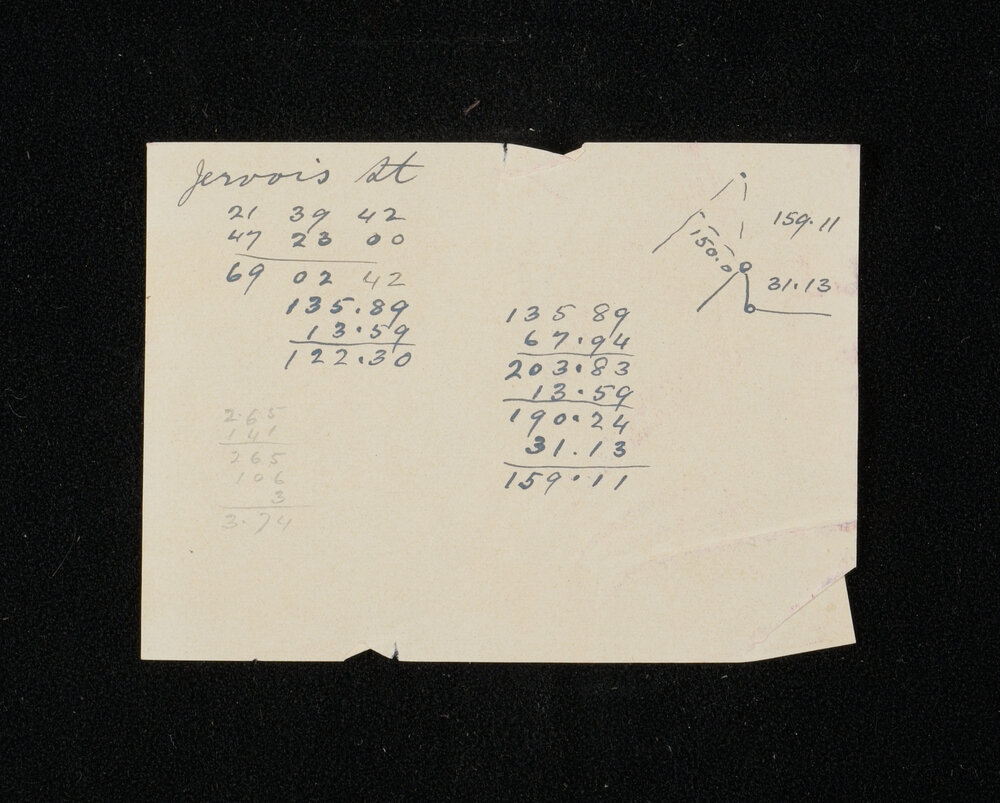 Jervois St
21 39 42
47 23 00
69 02 42
135.89
13.59
122.30
2.65
141
265
106
3
3.74
135 89
67.94
203.83
13.59
190.24
31.13
159.11
159.11
150.0
31.13